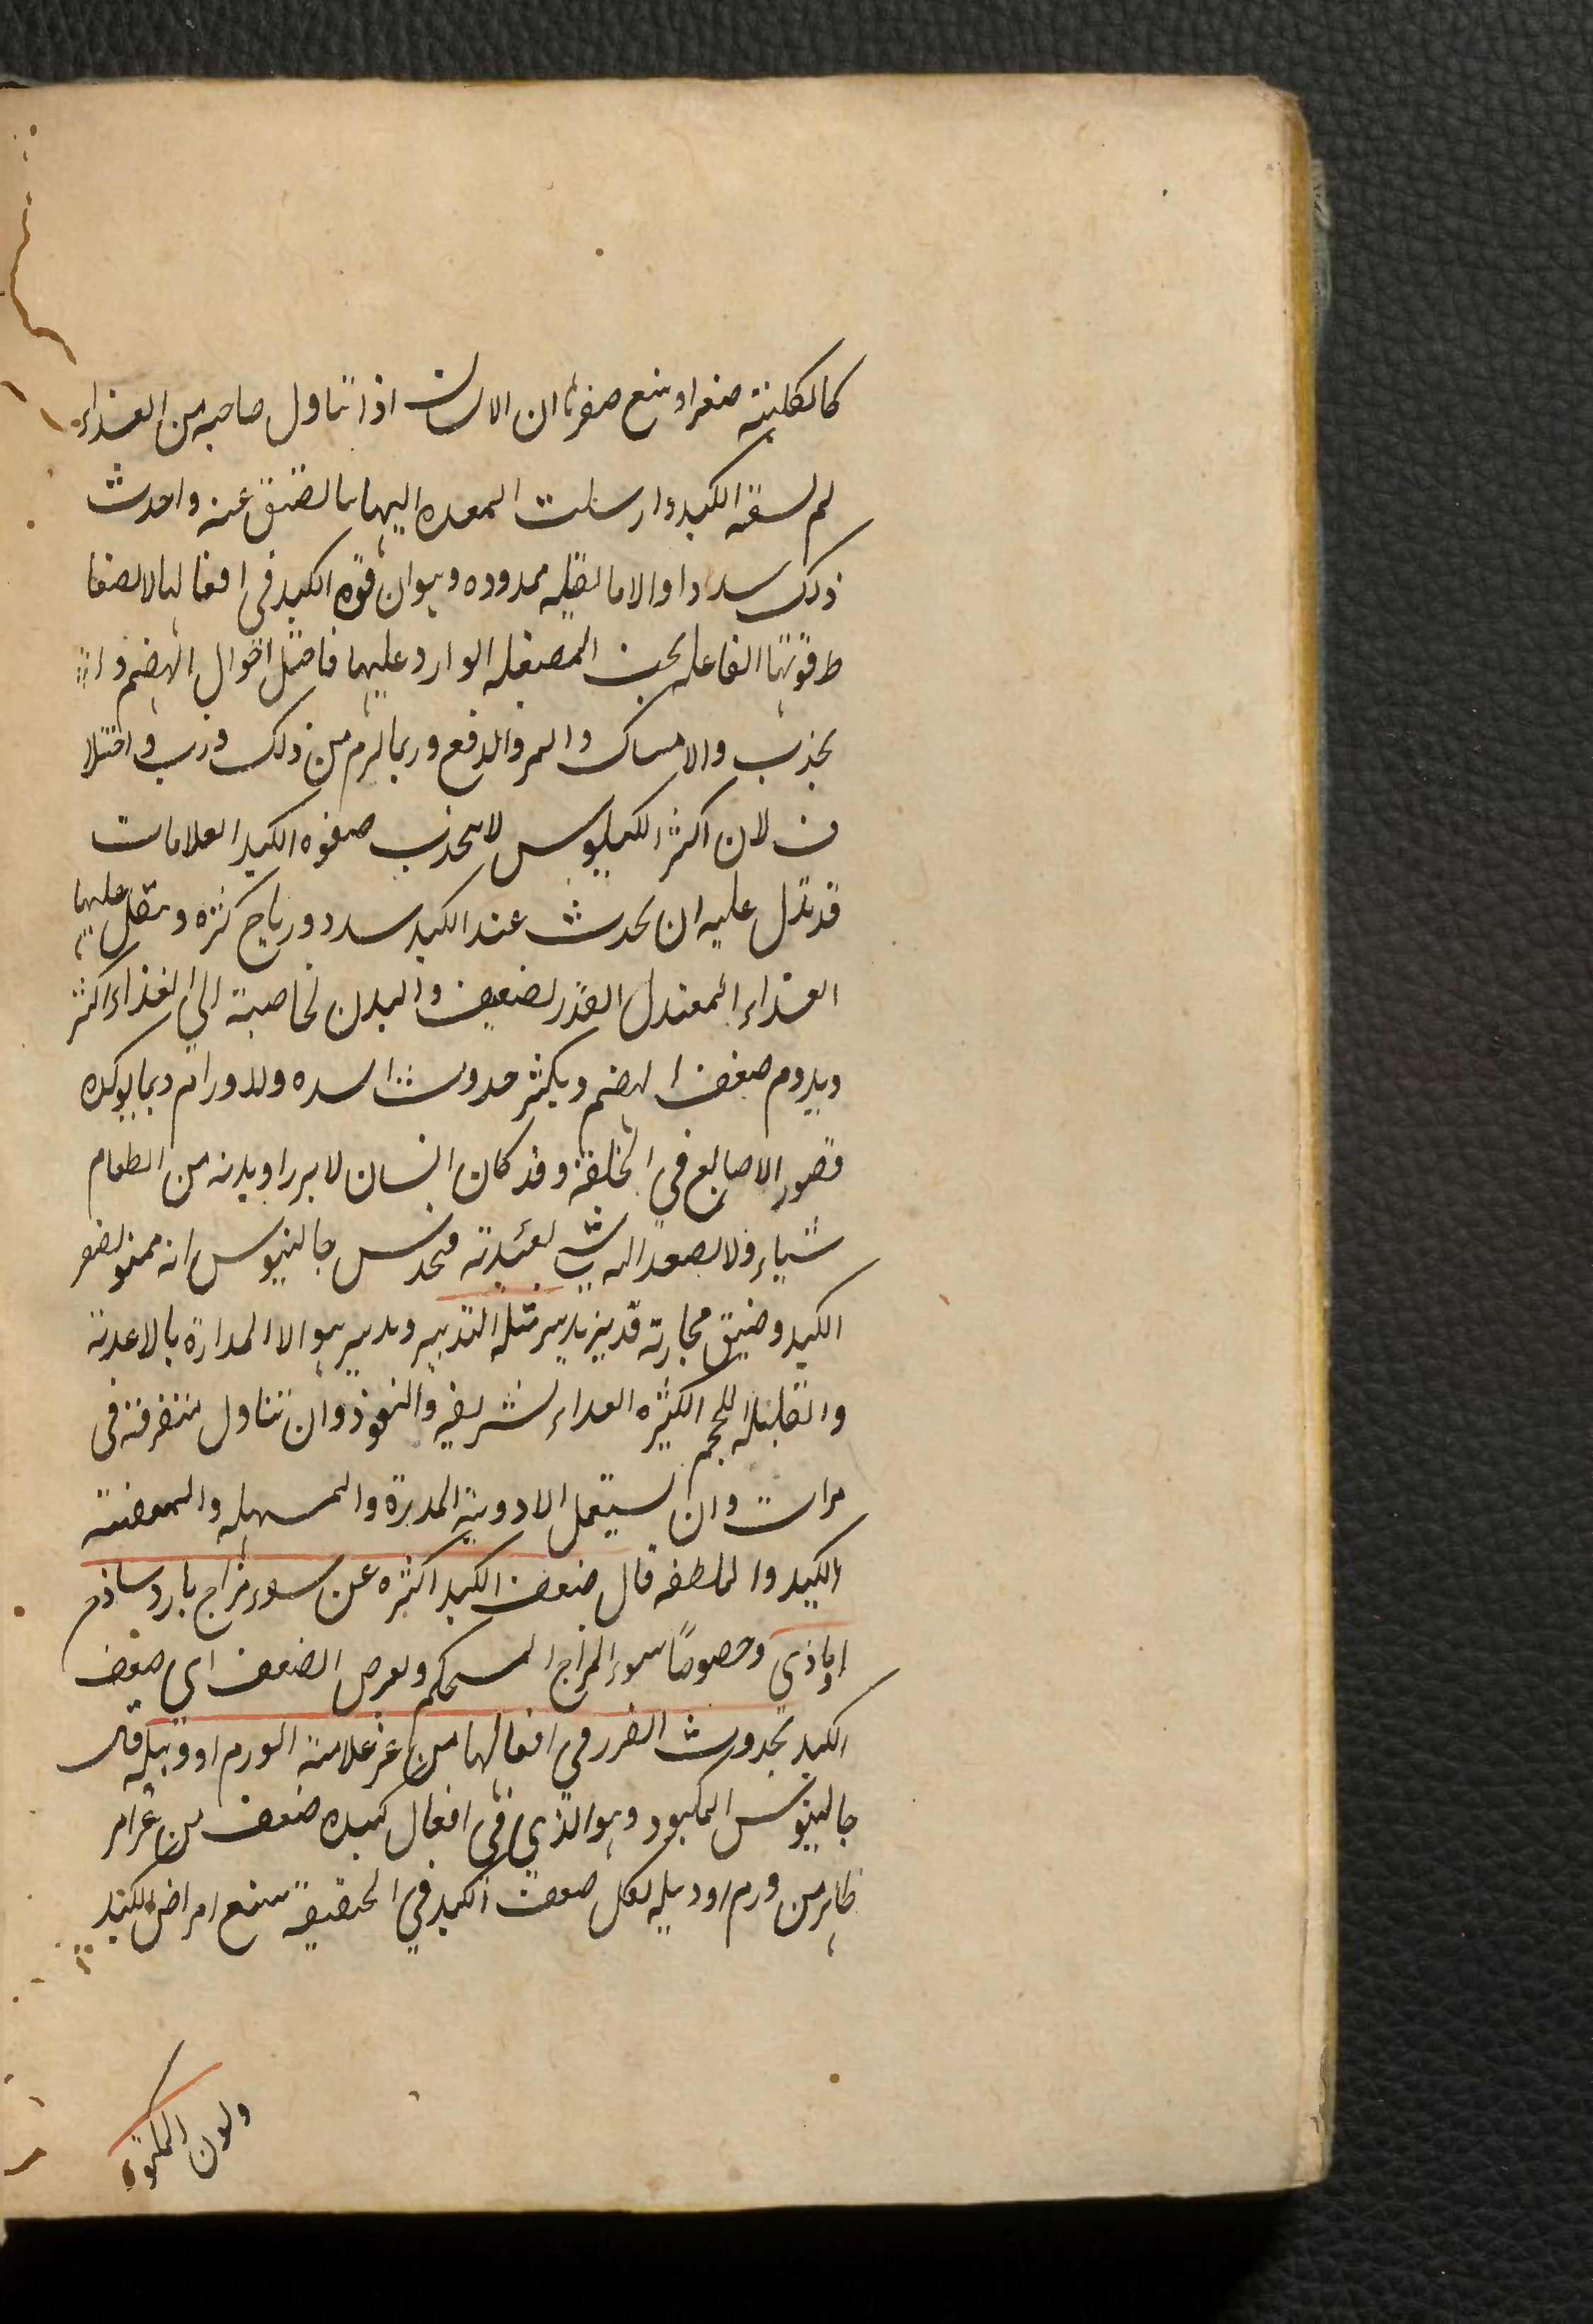 كالكلية صغرا ويتبع صغرها ان الانسان اذا تناول صاحبه من الغذاء
لم يسعه الكبد وارسلت المعده اليها ما لضيق عنه واحدث
ذلك سددا والاما ثقيله ممدوده ويوهن قوه الكبد في افعالها لانضغا
ط قوتها الفاعله تحت المنفعله الوارد عليها فاختل احوال الهضم وا
لجذب والامساك والتمييز والدفع وربما لزم من ذلك ذرب واختلا
ف لان اكثر الكيلوس لا يجذب صفوه الكبد العلامات
قد تدل عليه ان يحدث عند الكبد سدد ورياح كثره وثقل عليها
الغذاء المعتدل القدر لضعيف والبدن لحاجته الي الغذاء اكثر
ويدوم ضعف الهضم ويكثر حدوث السده والاورام ومما يوكده
قصور الاصابع في الخلقة وقد كان انسان لا يرزا وبدنه من الطعام
شياء ولا يصعد اليه شيء بعيدته فحدس جالنيوس انه ممنو بصغر
الكبد وضيق مجاريه فدبره تدبير مثله التدبير وتدبير هو الا المداراة بالاغدية
والقليلة الحجم الكثيره الغداء لشريفه والنفوذ وان تتناول متفرقة في
مرات وان يستعمل الادوية المدرة والمسهله والمنقية
الكبد والملطفه قال ضعف الكبد اكثره عن سوء مزاج بارد ساذج
او ماذي وخصوصًا سوء المزاج المستحكم ويعرض الضعف اي ضعف
الكبد بحدوث الضرر في افعالها من غير علامة الورم او دبيله قال
جالينوس المكبود وهو الذي في افعال كبده ضعف من غير امر
ظاهر من ورم او دبيله لعل ضعف الكبد في الحقيقة يتبع امراض الكبد
ولون